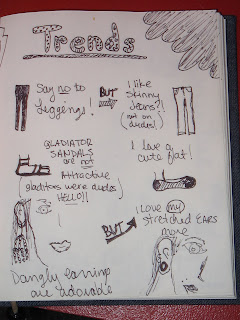 Trends
Say no to
Leggings!
BUT
I like
Skinny
Jeans?!
(not on
dudes!)
GLADIATOR
SANDALS
are not
Attractive
gladitors were dudes
HELLO!!
I love a
cute flat!
Dangly earrings
are adorable
BUT
I LOVE my
stretched EARS
more